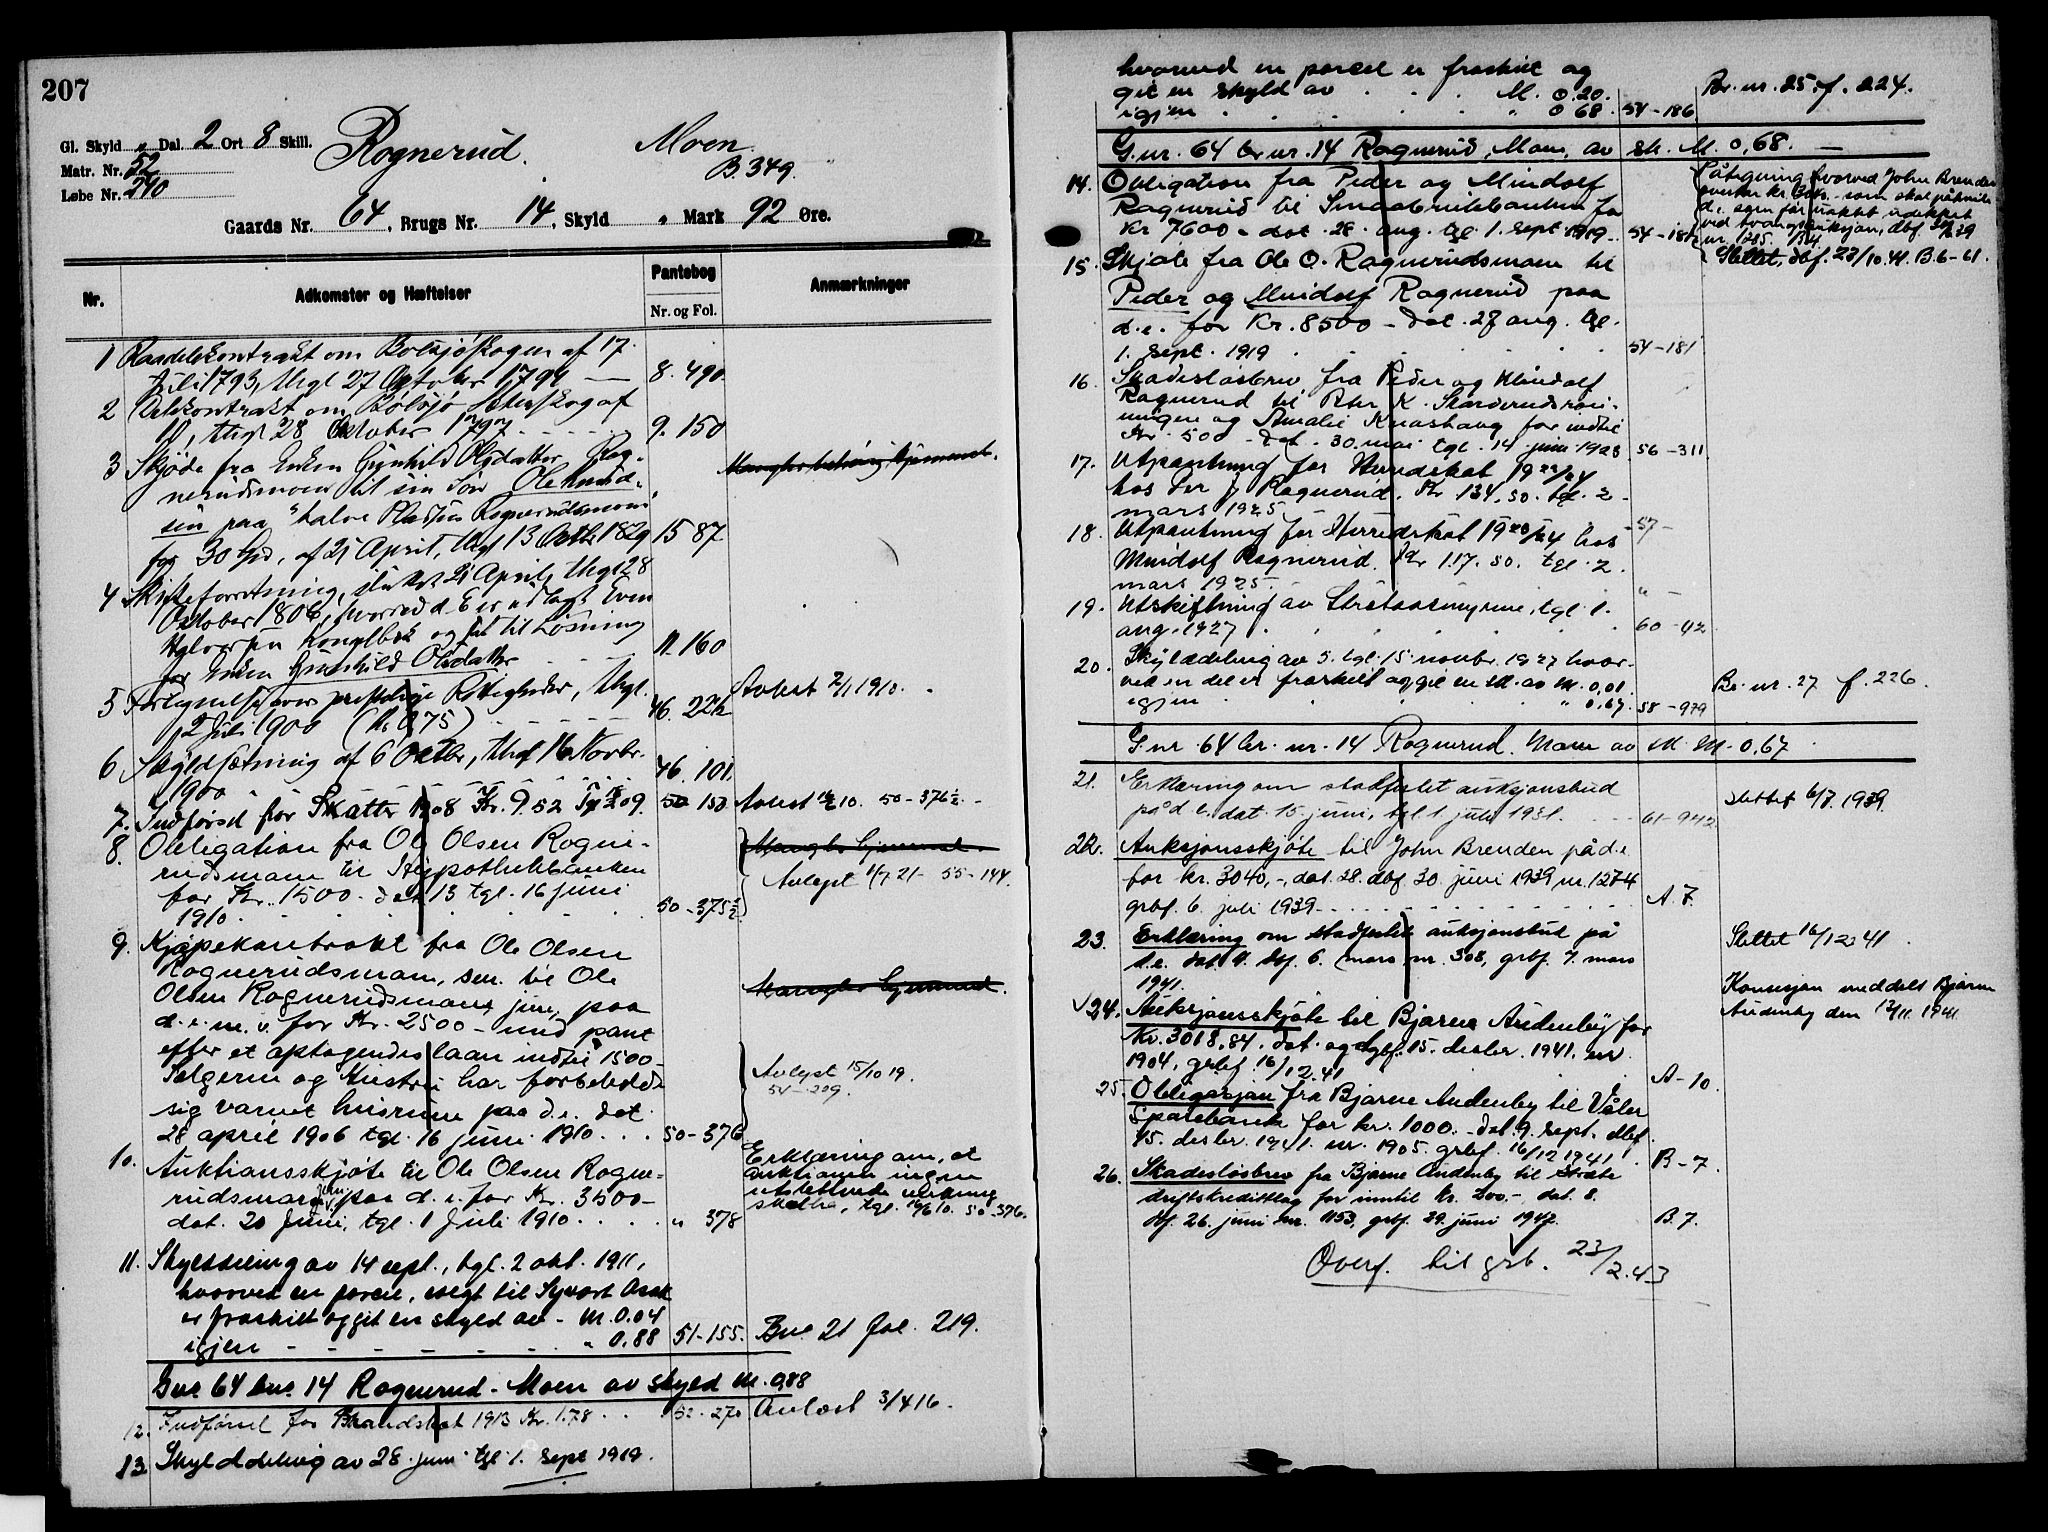 207
Gl. Skyld „ Dal. 2 Ort 8 Skill. Rognerud. Moen
Matr. Nr. 52 B. 349.
Løbe Nr. 240
Gaards Nr. 64, Brugs Nr. 14, Skyld „ Mark 92 Øre.
Nr. Adkomster og Hæftelser Pantebog Nr. og Fol. Anmærkninger
1 om af 17.
Juli 1793, thgl 27 Oktober 1794 8. 490.
2 Delekontrakt om af
10, thgl 28 Oktober 1797 9. 150
3 Skjøde fra Enken Gunhild Olsdatter Rog-
nerudsmoen til sin Søn Ole Knud-
sen paa halve Pladsen Rognerudsmoen
for 30 Spd, af 21 April, thgl 13 Octb 1829 15 87
4 Skifteforretning, sluttet 21 April, thgl 28
Oktober 1806, hvorved d. E er udlagt Even
Halvorsen Kongelbek og sat til Løsning
for Enken Gunhild Olsdatter 11. 160
5 over Rettigheder, thgl.
2 Juli 1900 (Kr. 0,75) 46. 222 Avlest 2/1 1910.
6 Skyldsætning af 6 Oktbr, thgl 16 Novbr.
1900 46. 101.
7. Indførsel for Skatter 1908 Kr. 9.52 09. 50 150 Avlest 10. 50-376½.
8. Obligation fra Ole Olsen Rogne-
rudsmoen til Hypothekbanken
for Kr. 1500. dat 13 tgl. 16 juni
1910. 50-375½ Avlyst 1/7 21- 55-144.
9. Kjøpekontrakt fra Ole Olsen
Rognerudsmoen, sen. til Ole
Olsen Rognerudsmoen, jun, paa
d.e. m.v. for Kr. 2500 - med pant
efter et optagendes laan indtil 1500-
Sælgeren og Hustru har forbeholdt
sig varmet husrum paa d.e. dat
28 april 1906 tgl. 16 juni 1910. 50-376
Avlyst 15/10 19.
54-209.
10. Auktionsskjøte til Ole Olsen Rogne-
rudsmoen jun. paa d.e. for Kr. 3500-
dat. 20 Juni, tgl. 1 Juli 1910. „ 378
Erklæring om, at
auktionen ingen
utslettende virkning
skal ha, tgl. 16/6 10. 50-376.
11. Skylddeling av 14 sept., tgl. 2 okt. 1911,
hvorved en parcel, solgt til Syvert Aas
er fraskilt og git en skyld av - M. 0.04
igjen „ 0.88 51-155. Bnr. 21 fol. 219.
Gnr 64 bnr. 14 Rognerud - Moen av skyld M. 0,88
12. Indførsel for Brandskat 1913 Kr. 1.78 52-270 Avlæst 3/4 16.
13 Skylddeling av 28. juni tgl 1. sept 1919.
hvorved en parcel er fraskilt og
git en skyld av M. 0.20. Br. nr. 25 f. 224.
igjen „ 0 68. 54-186
G.nr. 64 br.nr. 14 Rognerud, Moen, av sk. M. 0,68. —
14. Obligation fra Peder og Mindolf
Rognerud til Smaabrukbanken for
kr 7600 - dat. 28. aug. tgl. 1. sept. 1919 54-187
Påtegning hvorved John Brenden
overtar kr. som skal påhvile
d.e. som før uaktet udekket
ved tvangsauksjon, dbf. 30/6 39
nr. 1275. B 4.
Slettet, dbf. 23/10.41. B.6-61.
15. Skjøte fra Ole O. Rognerudsmoen til
Peder og Mindolf Rognerud paa
d.e. for Kr. 8500 - dat. 27 aug. tgl.
1. sept. 1919 54-181
16. Skadesløsbrev fra Peder og Mindolf
Rognerud til Ptr K. Skarderud
og Amalie for indtil
Kr. 500 - dat. 30. mai tgl. 14 juni 1923 56-311
17. Utpantning for Herredskat 1923/24
hos Peder J Rognerud. Kr 134.50. tgl. 2.
mars 1925 57-
18. Utpantning for Herredskat 1923/24 hos
Mindolf Rognerud. Kr 117.50. tgl. 2.
mars 1925. „ -
19. Utskiftning av Strætaasmyrene, tgl. 1.
aug. 1927 60-42
20. Skylddeling av 5. tgl. 15. novbr. 1927 hvor-
ved en del er fraskilt og git en sk. av M. 0,01 Br. nr. 27 f. 226.
igjen „ 0,67. 58-979
G.nr 64 br. nr. 14 Rognerud. Moen av sk. M. 0,67.
21. Erklæring om stadfestet auksjonsbud
på d.e. dat. 15. juni, tgl 1 juli 1931. 61-942 slettet 6/7. 1939.
22. Auksjonsskjøte til John Brenden på d.e.
for kr. 3040,-, dat. 28. dbf. 30. juni 1939 nr. 1274
grbf. 6. juli 1939. A. 7.
23. Erklæring om stadfestet auksjonsbud på
d.e. dat. 4. dbf. 6. mars nr. 308, grbf. 7. mars
1941. Slettet 16/12 41.
24. Auksjonsskjøte til Bjarne Audenby for
Kr. 3018.84. dat. og dgbf. 15. desbr. 1941. nr.
1904, grbf 16/12.41 A-10.
Konsesjon meddelt Bjarne
Audenby den 13/11. 1941.
25. Obligasjon fra Bjarne Audenby til Våler
Sparebank for kr. 1000.- dat. 9. sept. dbf.
15. desbr. 1941. nr. 1905. grbf. 16/12 1941. B-7.
26. Skadesløsbrev fra Bjarne Audenby til
driftskredittlag for inntil kr. 200.- dat. 8.
dbf. 26. juni nr. 1153, grbf. 29. juni 1942. B.7.
Overf. til grb. 23/2.43